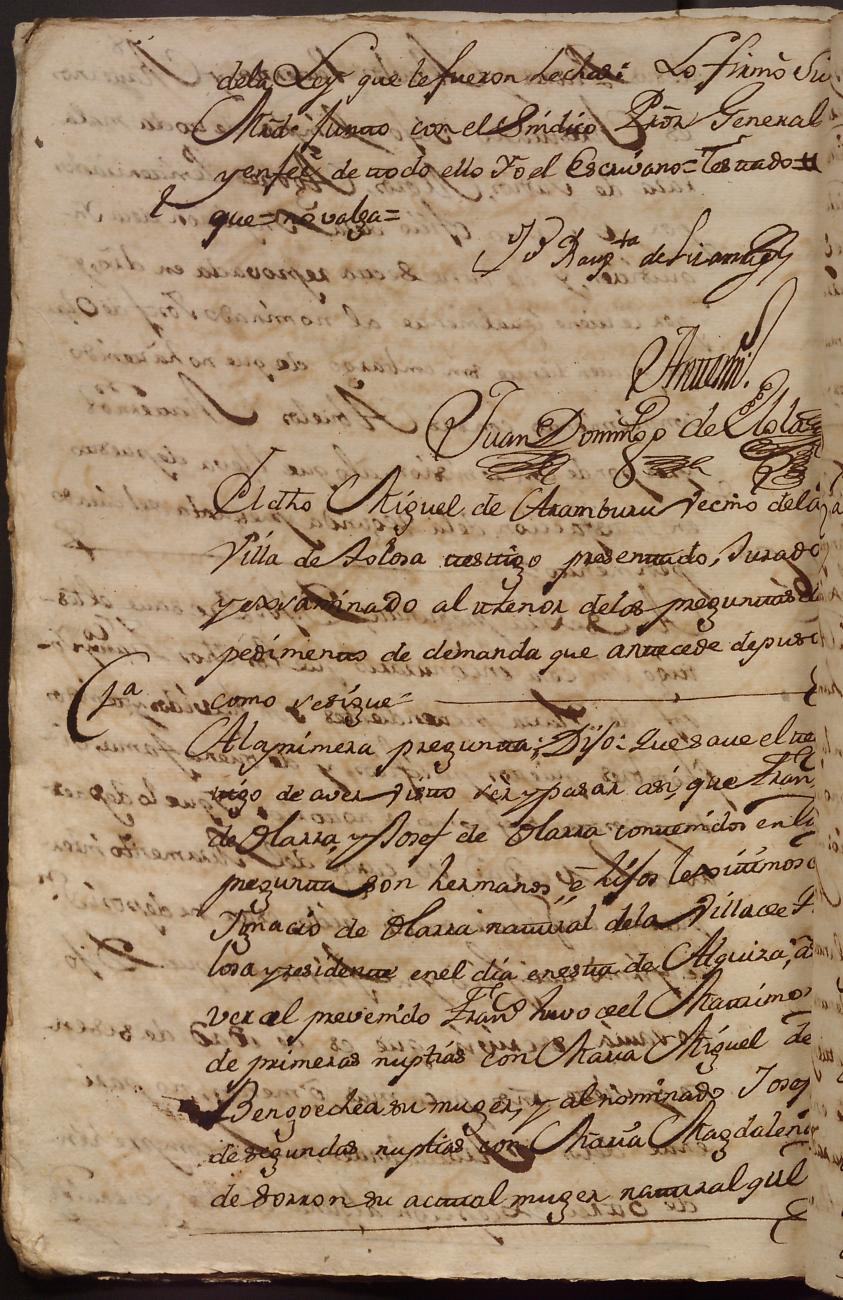 dela Ley que le fueron hechas: Lo firmó Su
Mrd. junto con el Sindico Pror General
y en fee de todo ello Yo el Escrivano=Testado=
que=no valga=
de
Antemi
Juan Domingo de
El dho Miguel de Aramburu vecino dela
Villa de Tolosa testigo presentado, Jurado
y exsaminado al thenor delas preguntas el
pedimento de demanda que antecede depuso
1a como se sigue
Ala primera pregunta; Dijo: Que save el tes
tigo de aver visto ser y pasar asi, que Franco
de Olarra, y Josef de Olarra contenidos en la
pregunta son hermanos, é hijos lexitimos
Ignacio de Olarra natural dela Villa de To
losa y residente en el dia en esta de Alquiza, á
ver el prevenido Franco huvo de el Matrimo
de primeras nuptias con Maria Miguel de
Bengoechea su muger, y al nominado Josef
de segundas nuptias con Maria Magdalena
de Sorron su actual muger natural que